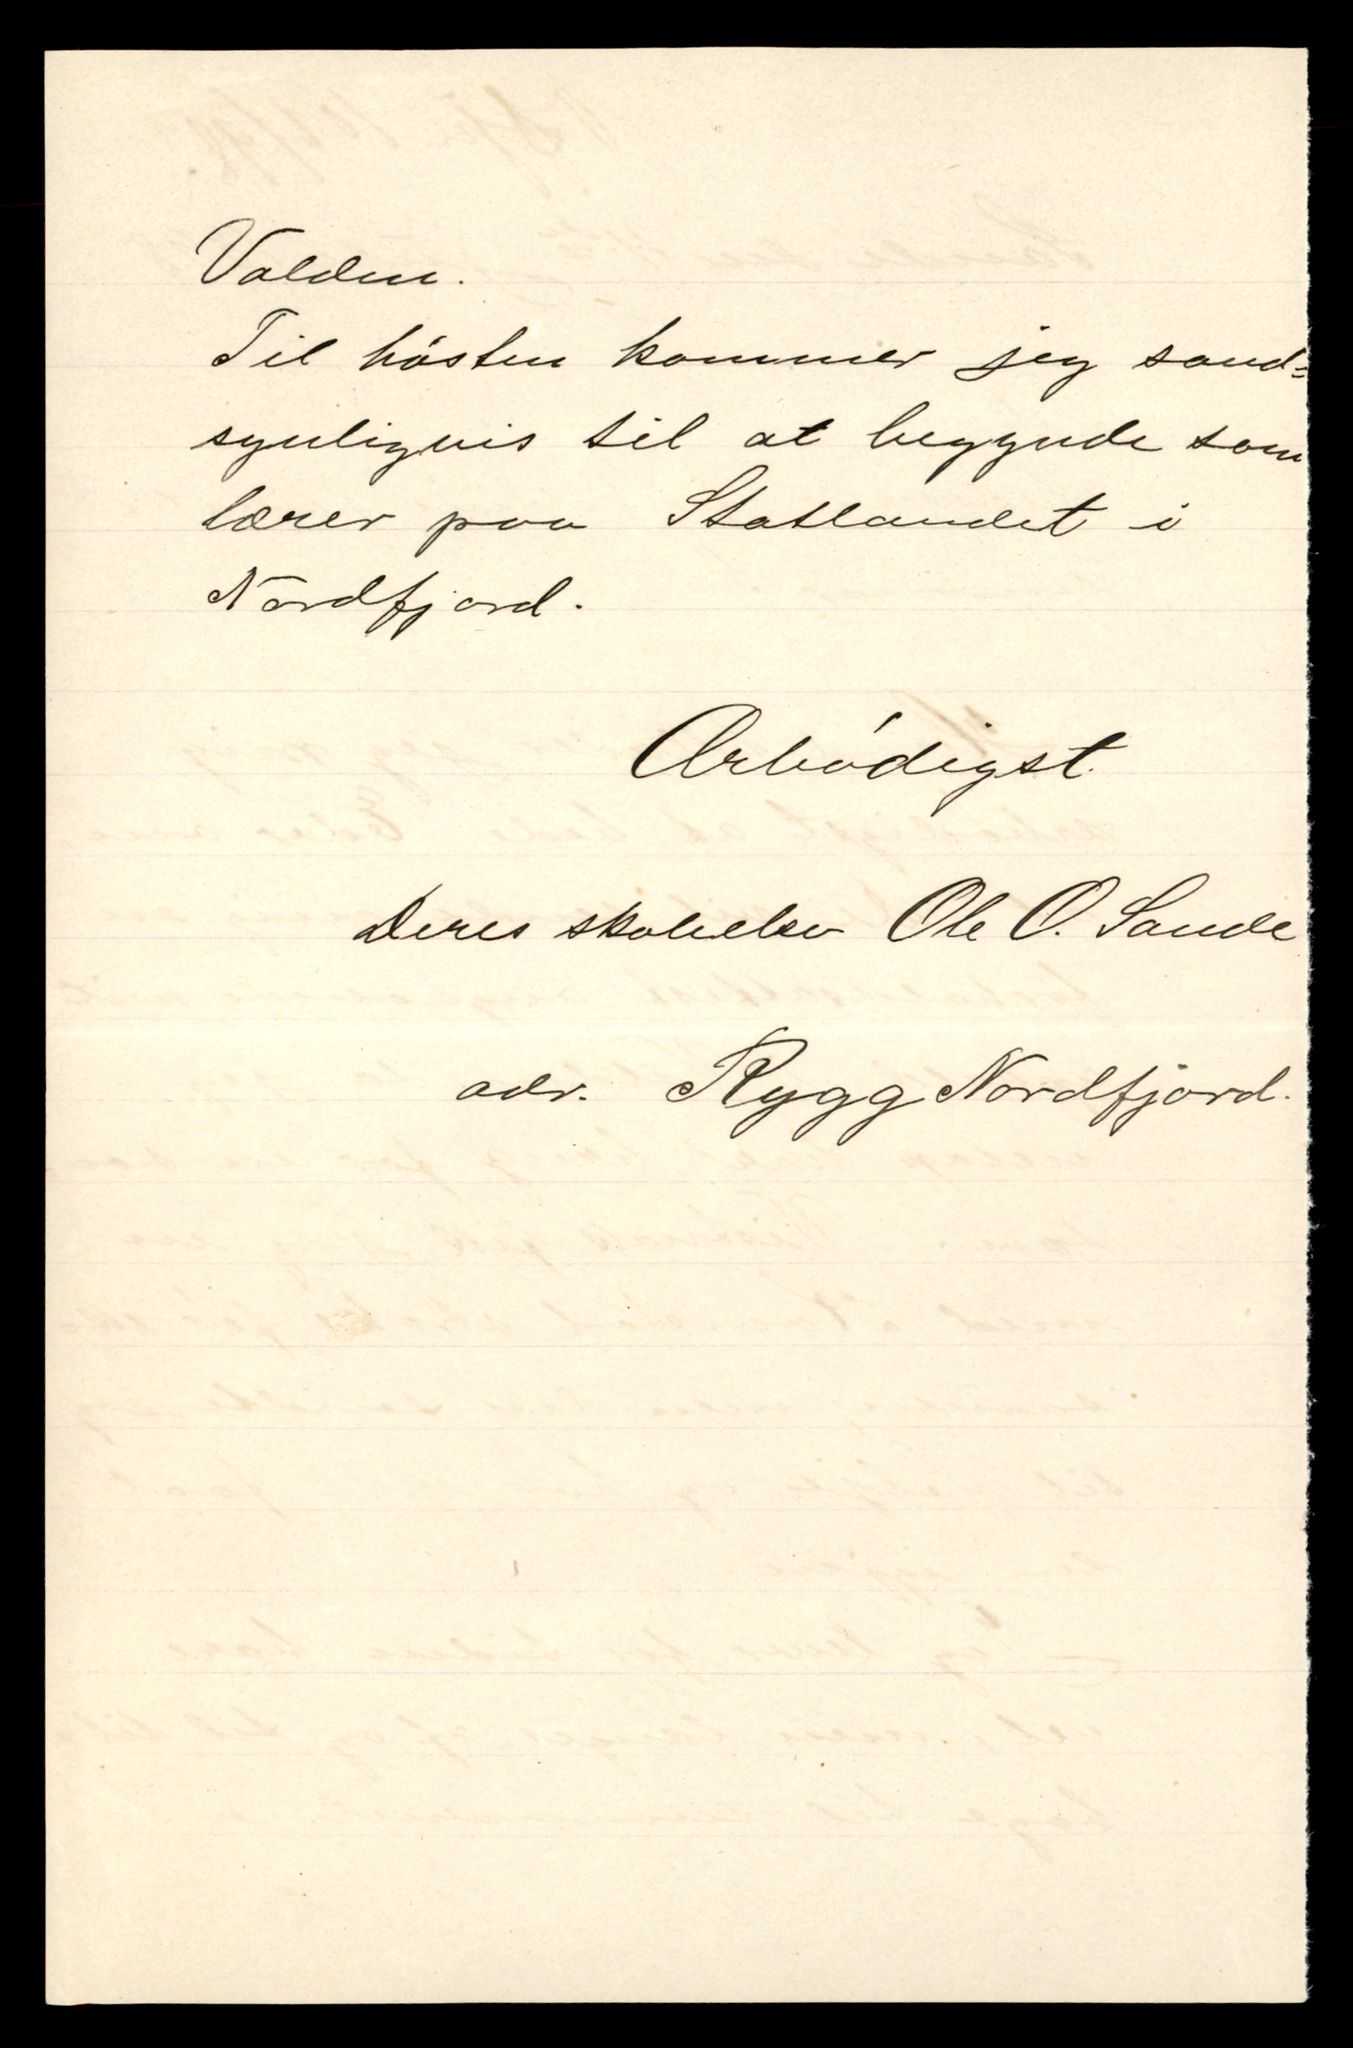 Valden.
Til hósten kommer jeg sand=
synligvis til at begynde som
lærer paa Statlandet i
Nordfjord.
Ærbódigst.
Deres skoleelev Ole O. Sande
adr. Rygg Nordfjord.